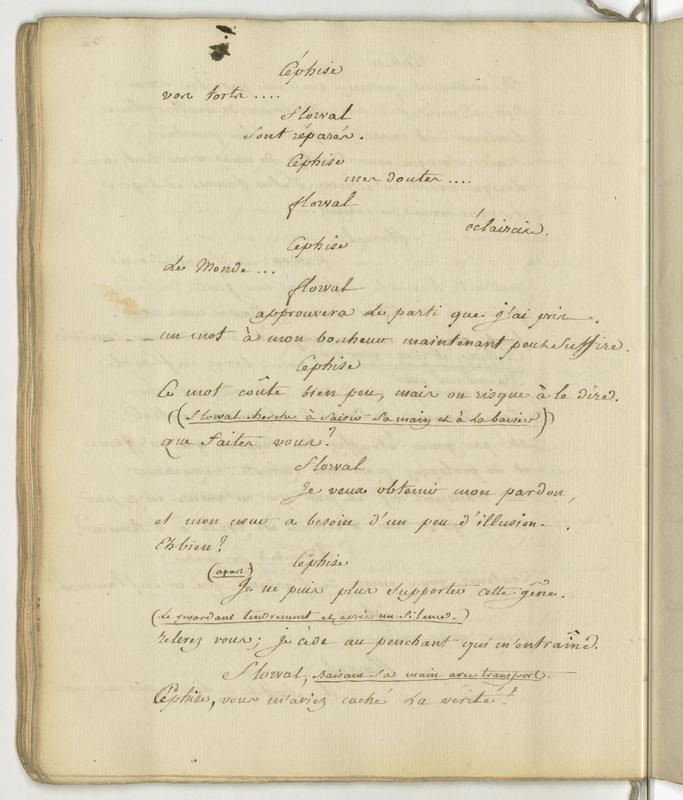 Céphise
vos torts ....
Florval
Sont réparés.
Céphise
mes doutes ....
florval
éclaircis.
Céphise
Le Monde ...
florval
approuvera Le parti que j'ai pris.
un mot à mon bonheur maintenant peut Suffire.
Céphise
Ce mot coûte bien peu, mais on risque à le dire.
(Florval cherche à Saisir Sa main et à La baiser)
que faites vous?
Florval
Je veux obtenir mon pardon,
et mon cœur a besoin d'un peu d'illusion.
Eh bien?
Céphise
(apart)
Je ne puis plus Supporter cette gêne.
(Le regardant tendrement et après un Silence.)
relevez vous; Je cède au penchant qui m'entraîne.
Florval, Baisant Sa main avec transport.
Céphise, vous m'aviez caché La vérité!